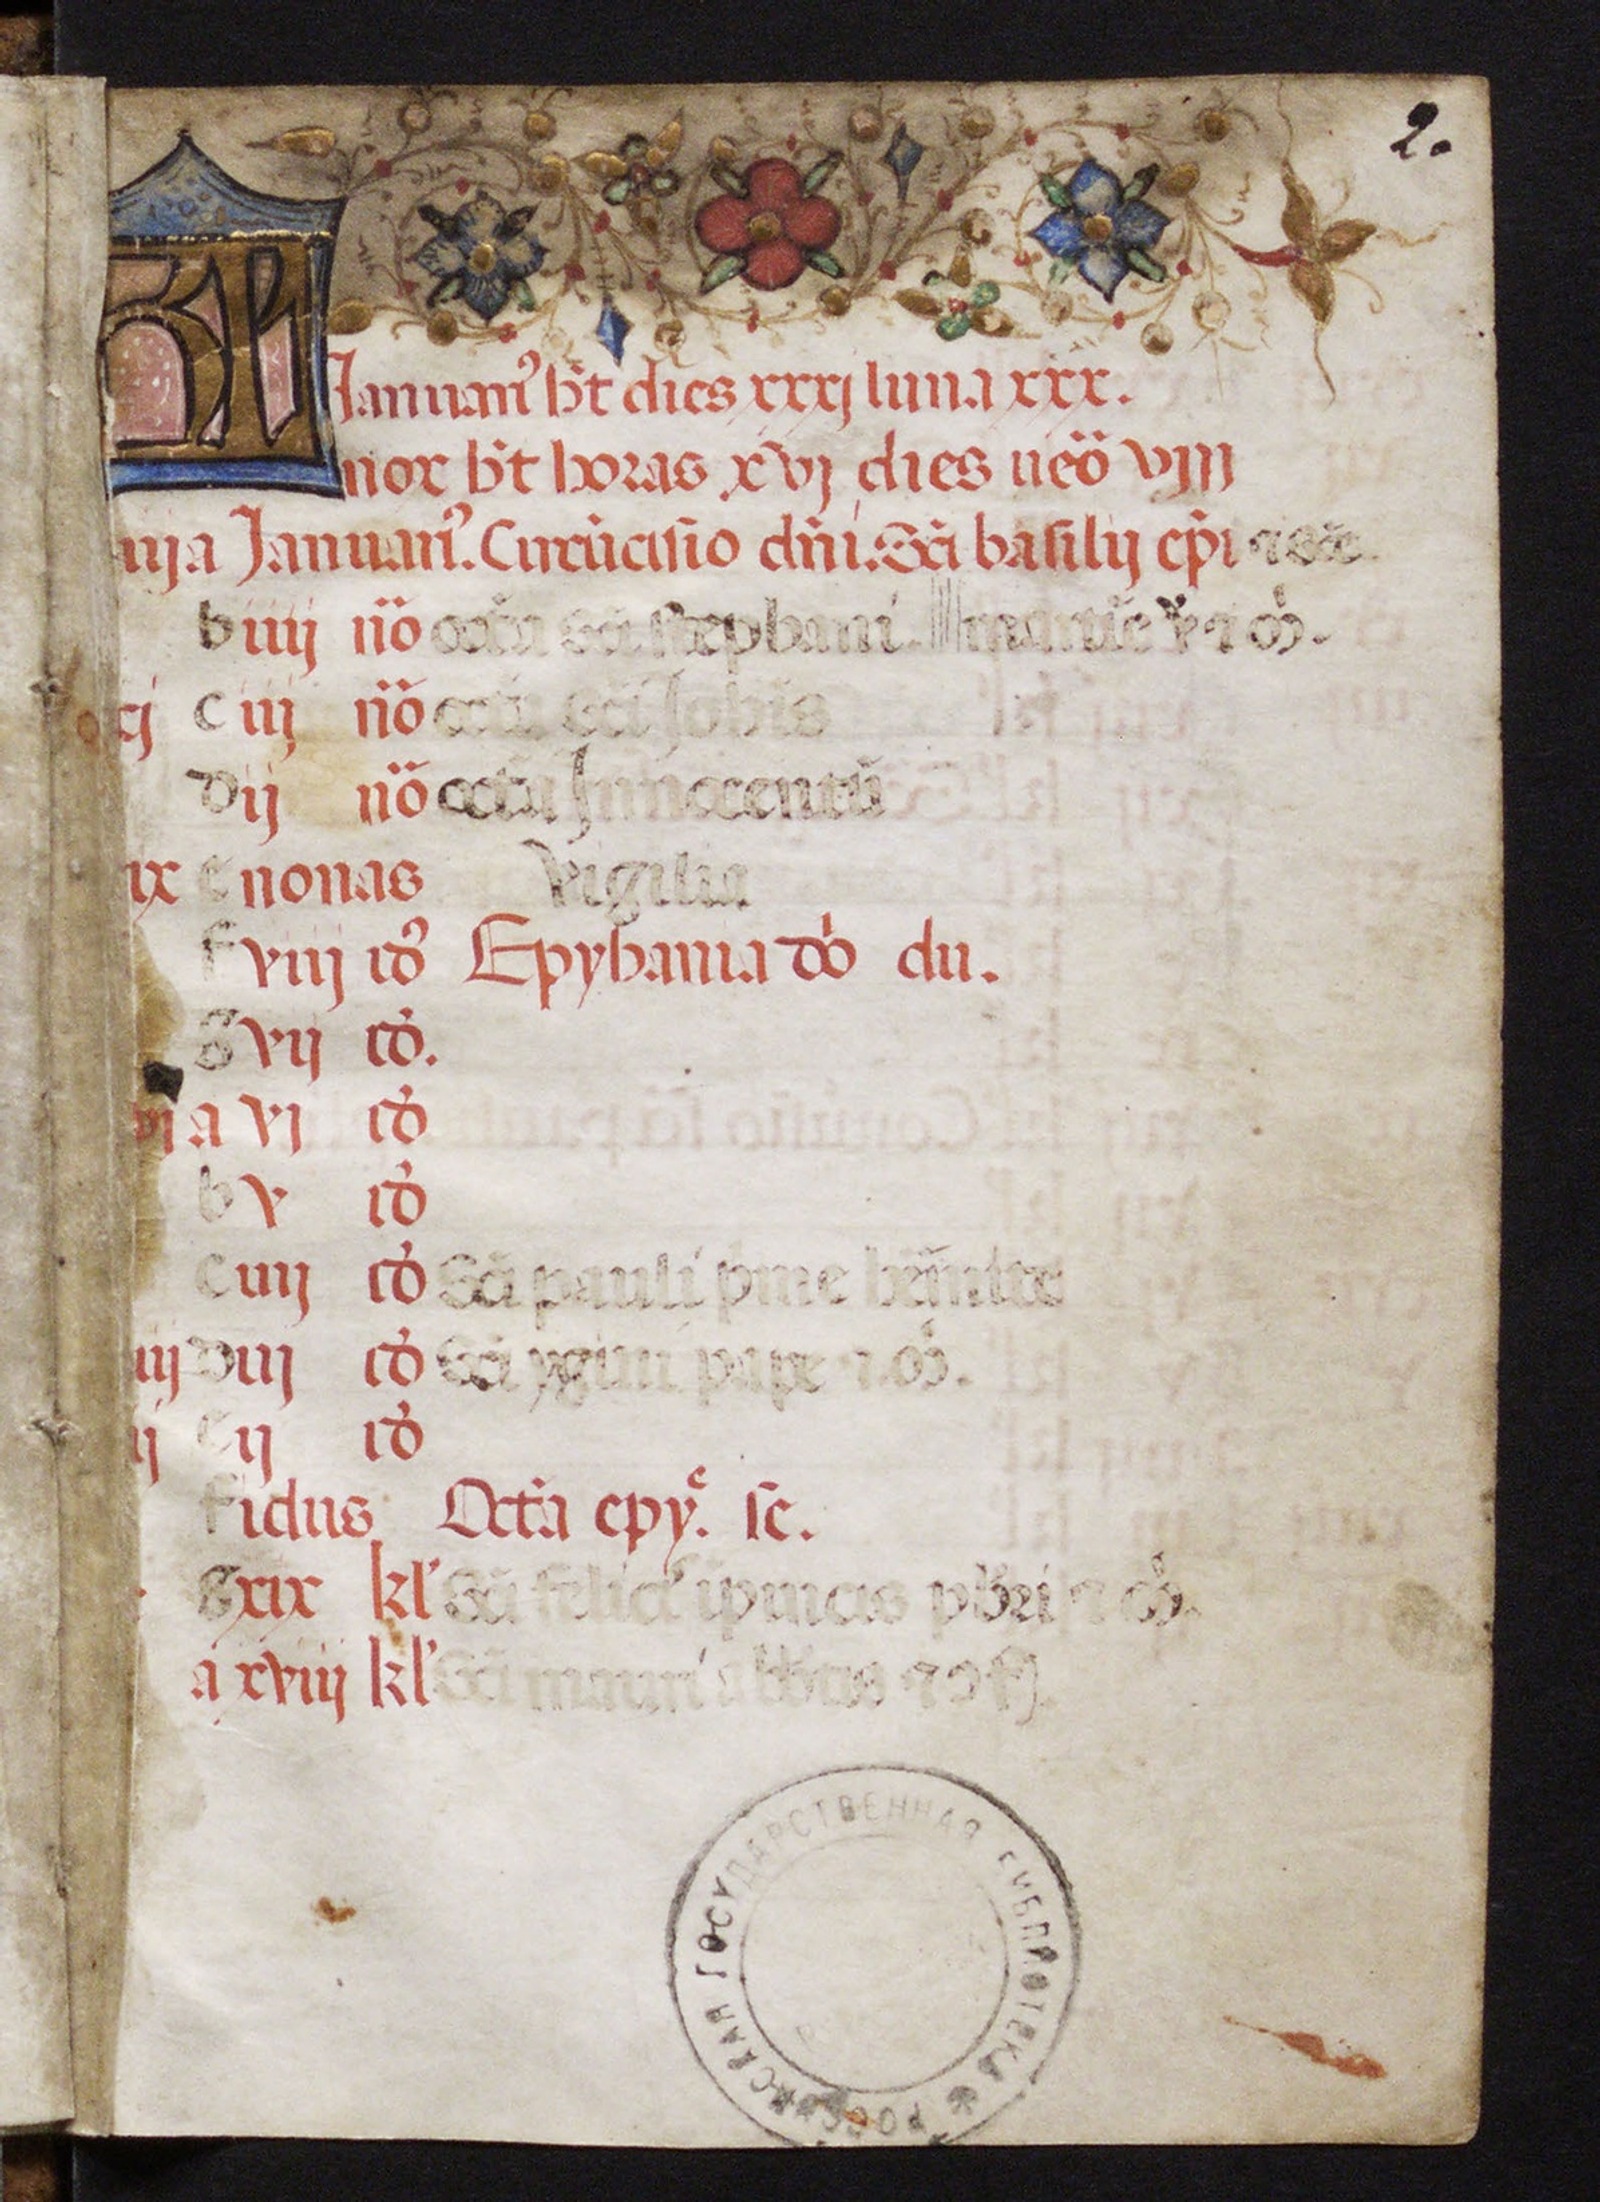 2.
KL
Januari᾽ h̄t dies xxxj luna xxx.
nox h̄t horas xvj dies ueo᷑ viij
iija Januari᾽. Circūcisio dn̄i. Sc̄i basilij ep̄i
b iiij no᷑ octa sc̄i stephani.
cj c iij no᷑ octa sc̄i Joh̄is
d ij no᷑ octa Innocentū
ix e nonas Vigilia
f viij id᾽ Epyhania do᷑ du.
g vij id᾽.
vj a vj id᾽
b v id᾽
c iiij id᾽ Sc̄i pauli p̄me
iij d iij id᾽ Sc̄i ygini pape
ij e ij id᾽
f idus Octā epy᷑. sc.
g xix kl᾽ Sc̄i felic᾽ ipincis
a xviij kl᾽ Sc̄i mauri abb̄is
РОССИЙСКАЯ ГОСУДАРСТВЕННАЯ БИБЛИОТЕКА